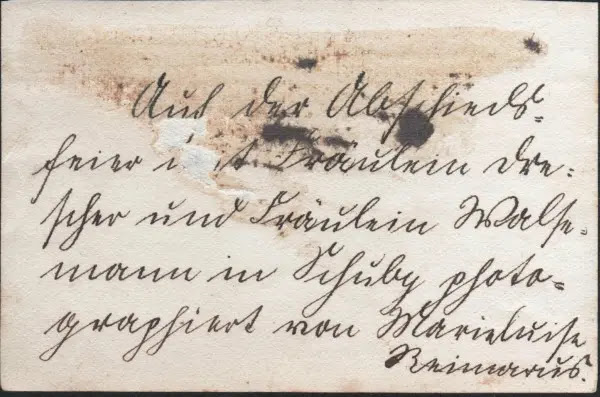 Auf der Abschieds-
feier mit Fräulein Dre-
scher und Fräulein Walse-
mann in Schuby photo-
graphiert von Marieluise
Reimarus.